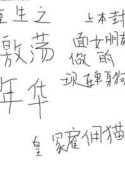 生之
激荡
年华
上本封
面女朋
做的
皇家雇佣猫